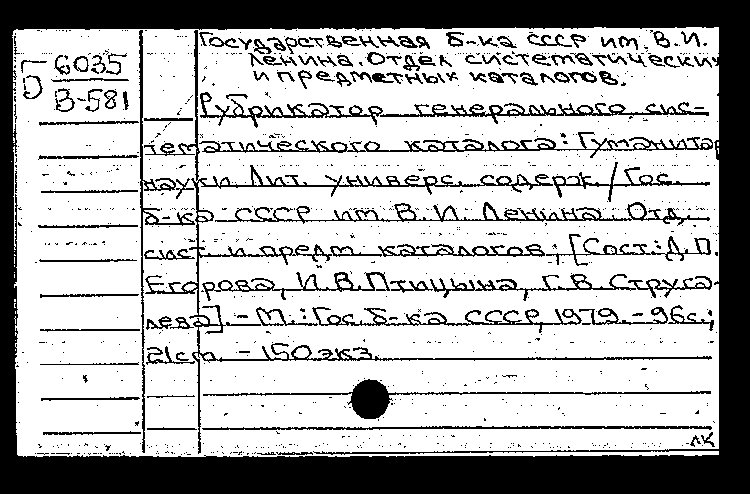 Государственная б-ка СССР им. В.И.
Ленина. Отдел систематически
и предметных каталогов.
Б 6035
В-581
Рубрикатор генерального сис-
тематического каталога: Гуманитар
науки. Лит. универс. содерж. / Гос.
б-ка СССР им. В. И. Ленина. Отд.
сист. и предм. каталогов; [Сост.: Д. П.
Егорова, И. В. Птицына, Г. В. Струса-
лева]. - М.: Гос. б-ка СССР, 1979. - 96с.;
21см. - 150 экз.
лк